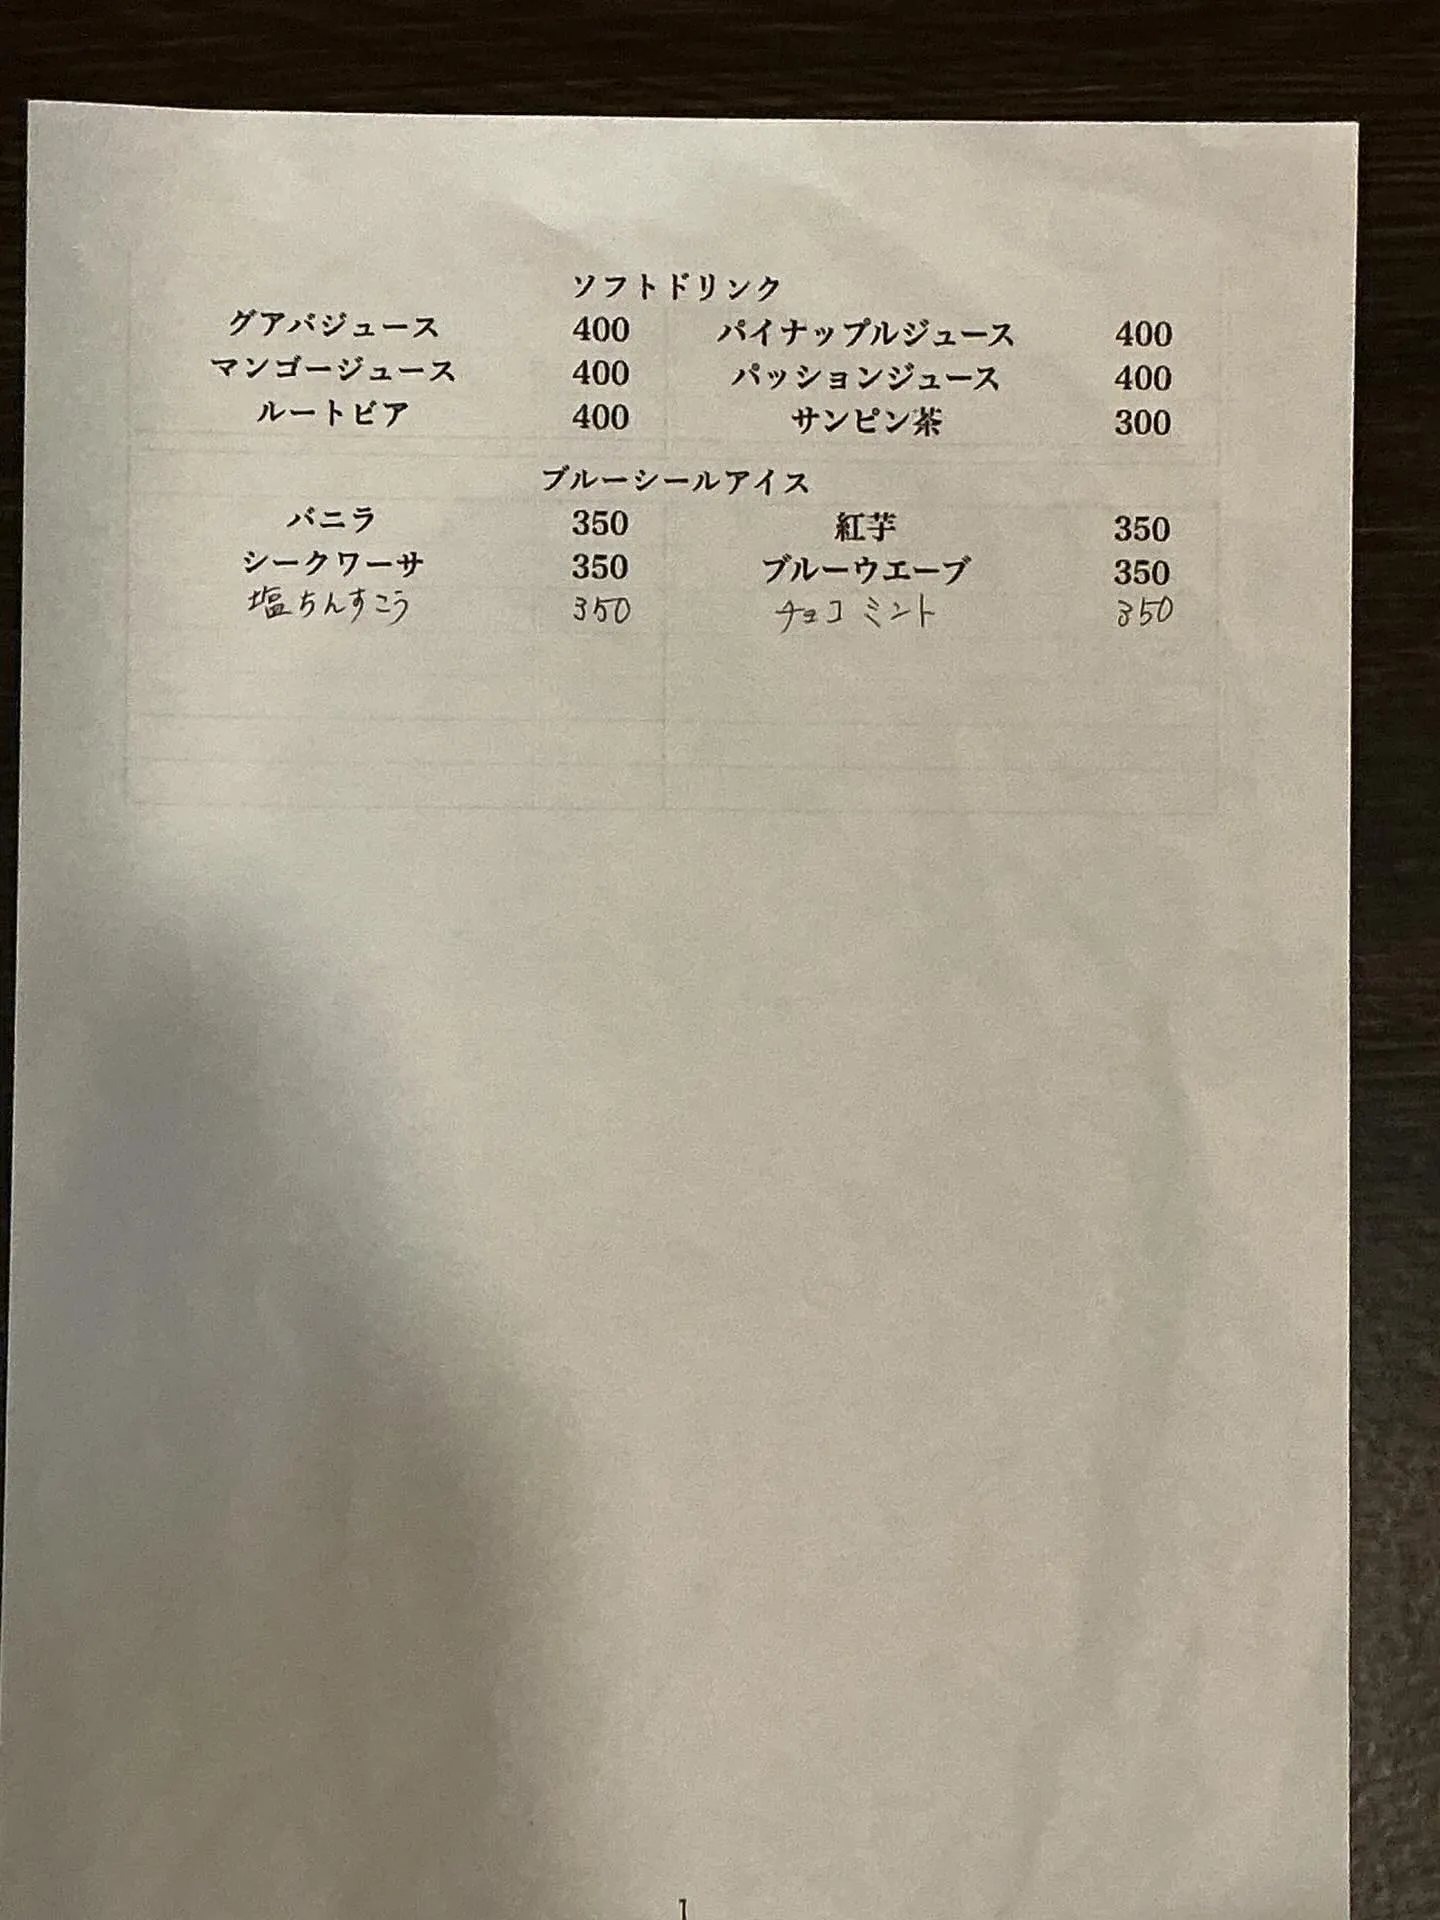 ソフトドリンク
グアバジュース 400 パイナップルジュース 400
マンゴージュース 400 パッションジュース 400
ルートビア 400 サンピン茶 300
ブルーシールアイス
バニラ 350 紅芋 350
シークワーサ 350 ブルーウエーブ 350
塩ちんすこう 350 チョコミント 350
1